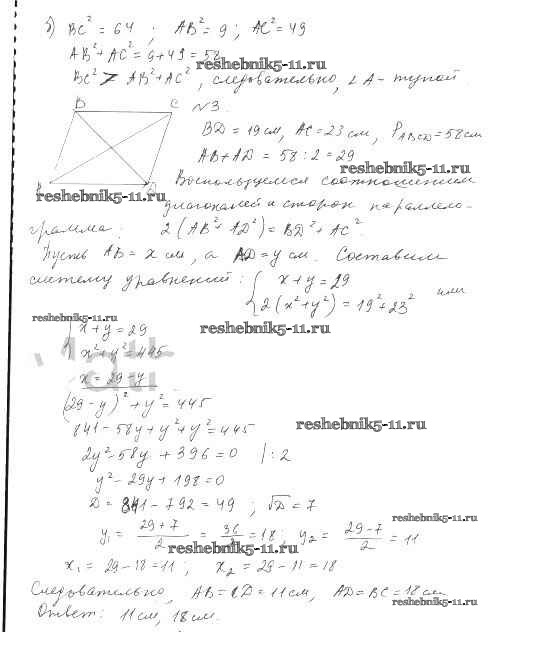 б) BC² = 64 ; AB² = 9 ; AC² = 49
AB² + AC² = 9 + 49 = 58
reshebnik5-11.ru
BC² > AB² + AC², следовательно, ∠A - тупой
B C
N3.
BD = 19 см, AC = 23 см, P_ABCD = 58 см
AB + AD = 58 : 2 = 29
reshebnik5-11.ru
Воспользуемся соотношением
reshebnik5-11.ru
диагоналей и сторон паралле-
грамма: 2(AB² + AD²) = BD² + AC².
Пусть AB = x см, а AD = y см. Составим
систему уравнений: { x + y = 29
2(x² + y²) = 19² + 23² или
reshebnik5-11.ru
{ x + y = 29
reshebnik5-11.ru
x² + y² = 445
x = 29 - y
(29 - y)² + y² = 445
841 - 58y + y² + y² = 445
reshebnik5-11.ru
2y² - 58y + 396 = 0 | : 2
y² - 29y + 198 = 0
D = 841 - 792 = 49 ; √D = 7
reshebnik5-11.ru
y₁ = (29 + 7)/2 = 36/2 = 18 ; y₂ = (29 - 7)/2 = 11
reshebnik5-11.ru
x₁ = 29 - 18 = 11 ; x₂ = 29 - 11 = 18
Следовательно, AB = CD = 11 см, AD = BC = 18 см
reshebnik5-11.ru
Ответ: 11 см, 18 см.